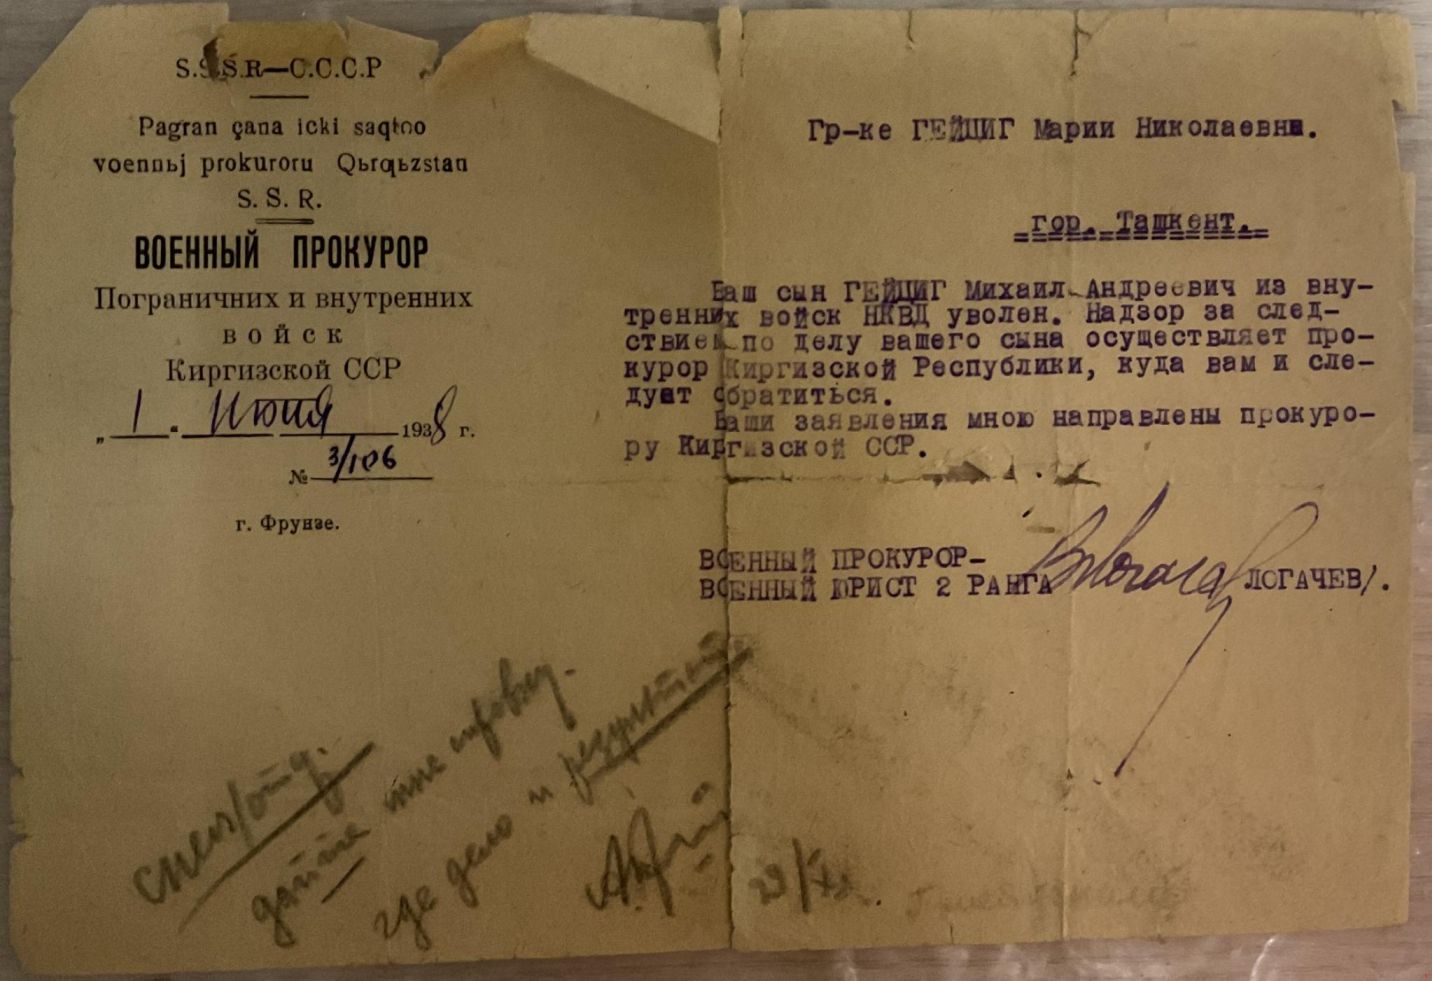 S.S.S.R—С.С.С.Р
Pagran çana icki saqtoo
voennьj prokuroru Qьrqьzstan
S. S. R.
ВОЕННЫЙ ПРОКУРОР
Пограничних и внутренних
войск
Киргизской ССР
„ 1 " Июня 1938 г.
№ 3/106
г. Фрунзе.
Гр-ке ГЕЙЦИГ Марии Николаевны.
гор. Ташкент.
Ваш сын ГЕЙЦИГ Михаил Андреевич из вну-
тренних войск НКВД уволен. Надзор за след-
ствием по делу вашего сына осуществляет про-
курор Киргизской Республики, куда вам и сле-
дует обратиться.
Ваши заявления мною направлены прокуро-
ру Киргизской ССР.
ВОЕННЫЙ ПРОКУРОР-
ВОЕННЫЙ ЮРИСТ 2 РАНГА ЛОГАЧЕВ/.
спец/отд.
дайте мне справку
где дело и результат.